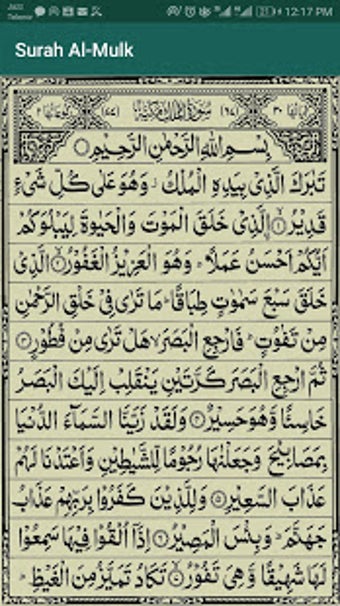 Jazz
Telenor
12:17 PM
Surah Al-Mulk
بِسْمِ اللهِ الرَّحْمٰنِ الرَّحِيْمِ
تَبٰرَكَ الَّذِىْ بِيَدِهِ الْمُلْكُ ۙ وَهُوَ عَلٰى كُلِّ شَىْءٍ
قَدِيْرٌ ۙ﴿۱﴾ الَّذِىْ خَلَقَ الْمَوْتَ وَالْحَيٰوةَ لِيَبْلُوَكُمْ
اَيُّكُمْ اَحْسَنُ عَمَلًا ؕ وَهُوَ الْعَزِيْزُ الْغَفُوْرُ ۙ﴿۲﴾ الَّذِىْ
خَلَقَ سَبْعَ سَمٰوٰتٍ طِبَاقًا ؕ مَا تَرٰى فِىْ خَلْقِ الرَّحْمٰنِ
مِنْ تَفٰوُتٍ ؕ فَارْجِعِ الْبَصَرَ ۙ هَلْ تَرٰى مِنْ فُطُوْرٍ ﴿۳﴾
ثُمَّ ارْجِعِ الْبَصَرَ كَرَّتَيْنِ يَنْقَلِبْ اِلَيْكَ الْبَصَرُ
خَاسِئًا وَّهُوَ حَسِيْرٌ ﴿۴﴾ وَلَقَدْ زَيَّنَّا السَّمَآءَ الدُّنْيَا
بِمَصَابِيْحَ وَجَعَلْنٰهَا رُجُوْمًا لِّلشَّيٰطِيْنِ وَاَعْتَدْنَا لَهُمْ
عَذَابَ السَّعِيْرِ ﴿۵﴾ وَلِلَّذِيْنَ كَفَرُوْا بِرَبِّهِمْ عَذَابُ
جَهَنَّمَ ؕ وَبِئْسَ الْمَصِيْرُ ﴿۶﴾ اِذَآ اُلْقُوْا فِيْهَا سَمِعُوْا
لَهَا شَهِيْقًا وَّهِىَ تَفُوْرُ ۙ﴿۷﴾ تَكَادُ تَمَيَّزُ مِنَ الْغَيْظِ ؕ